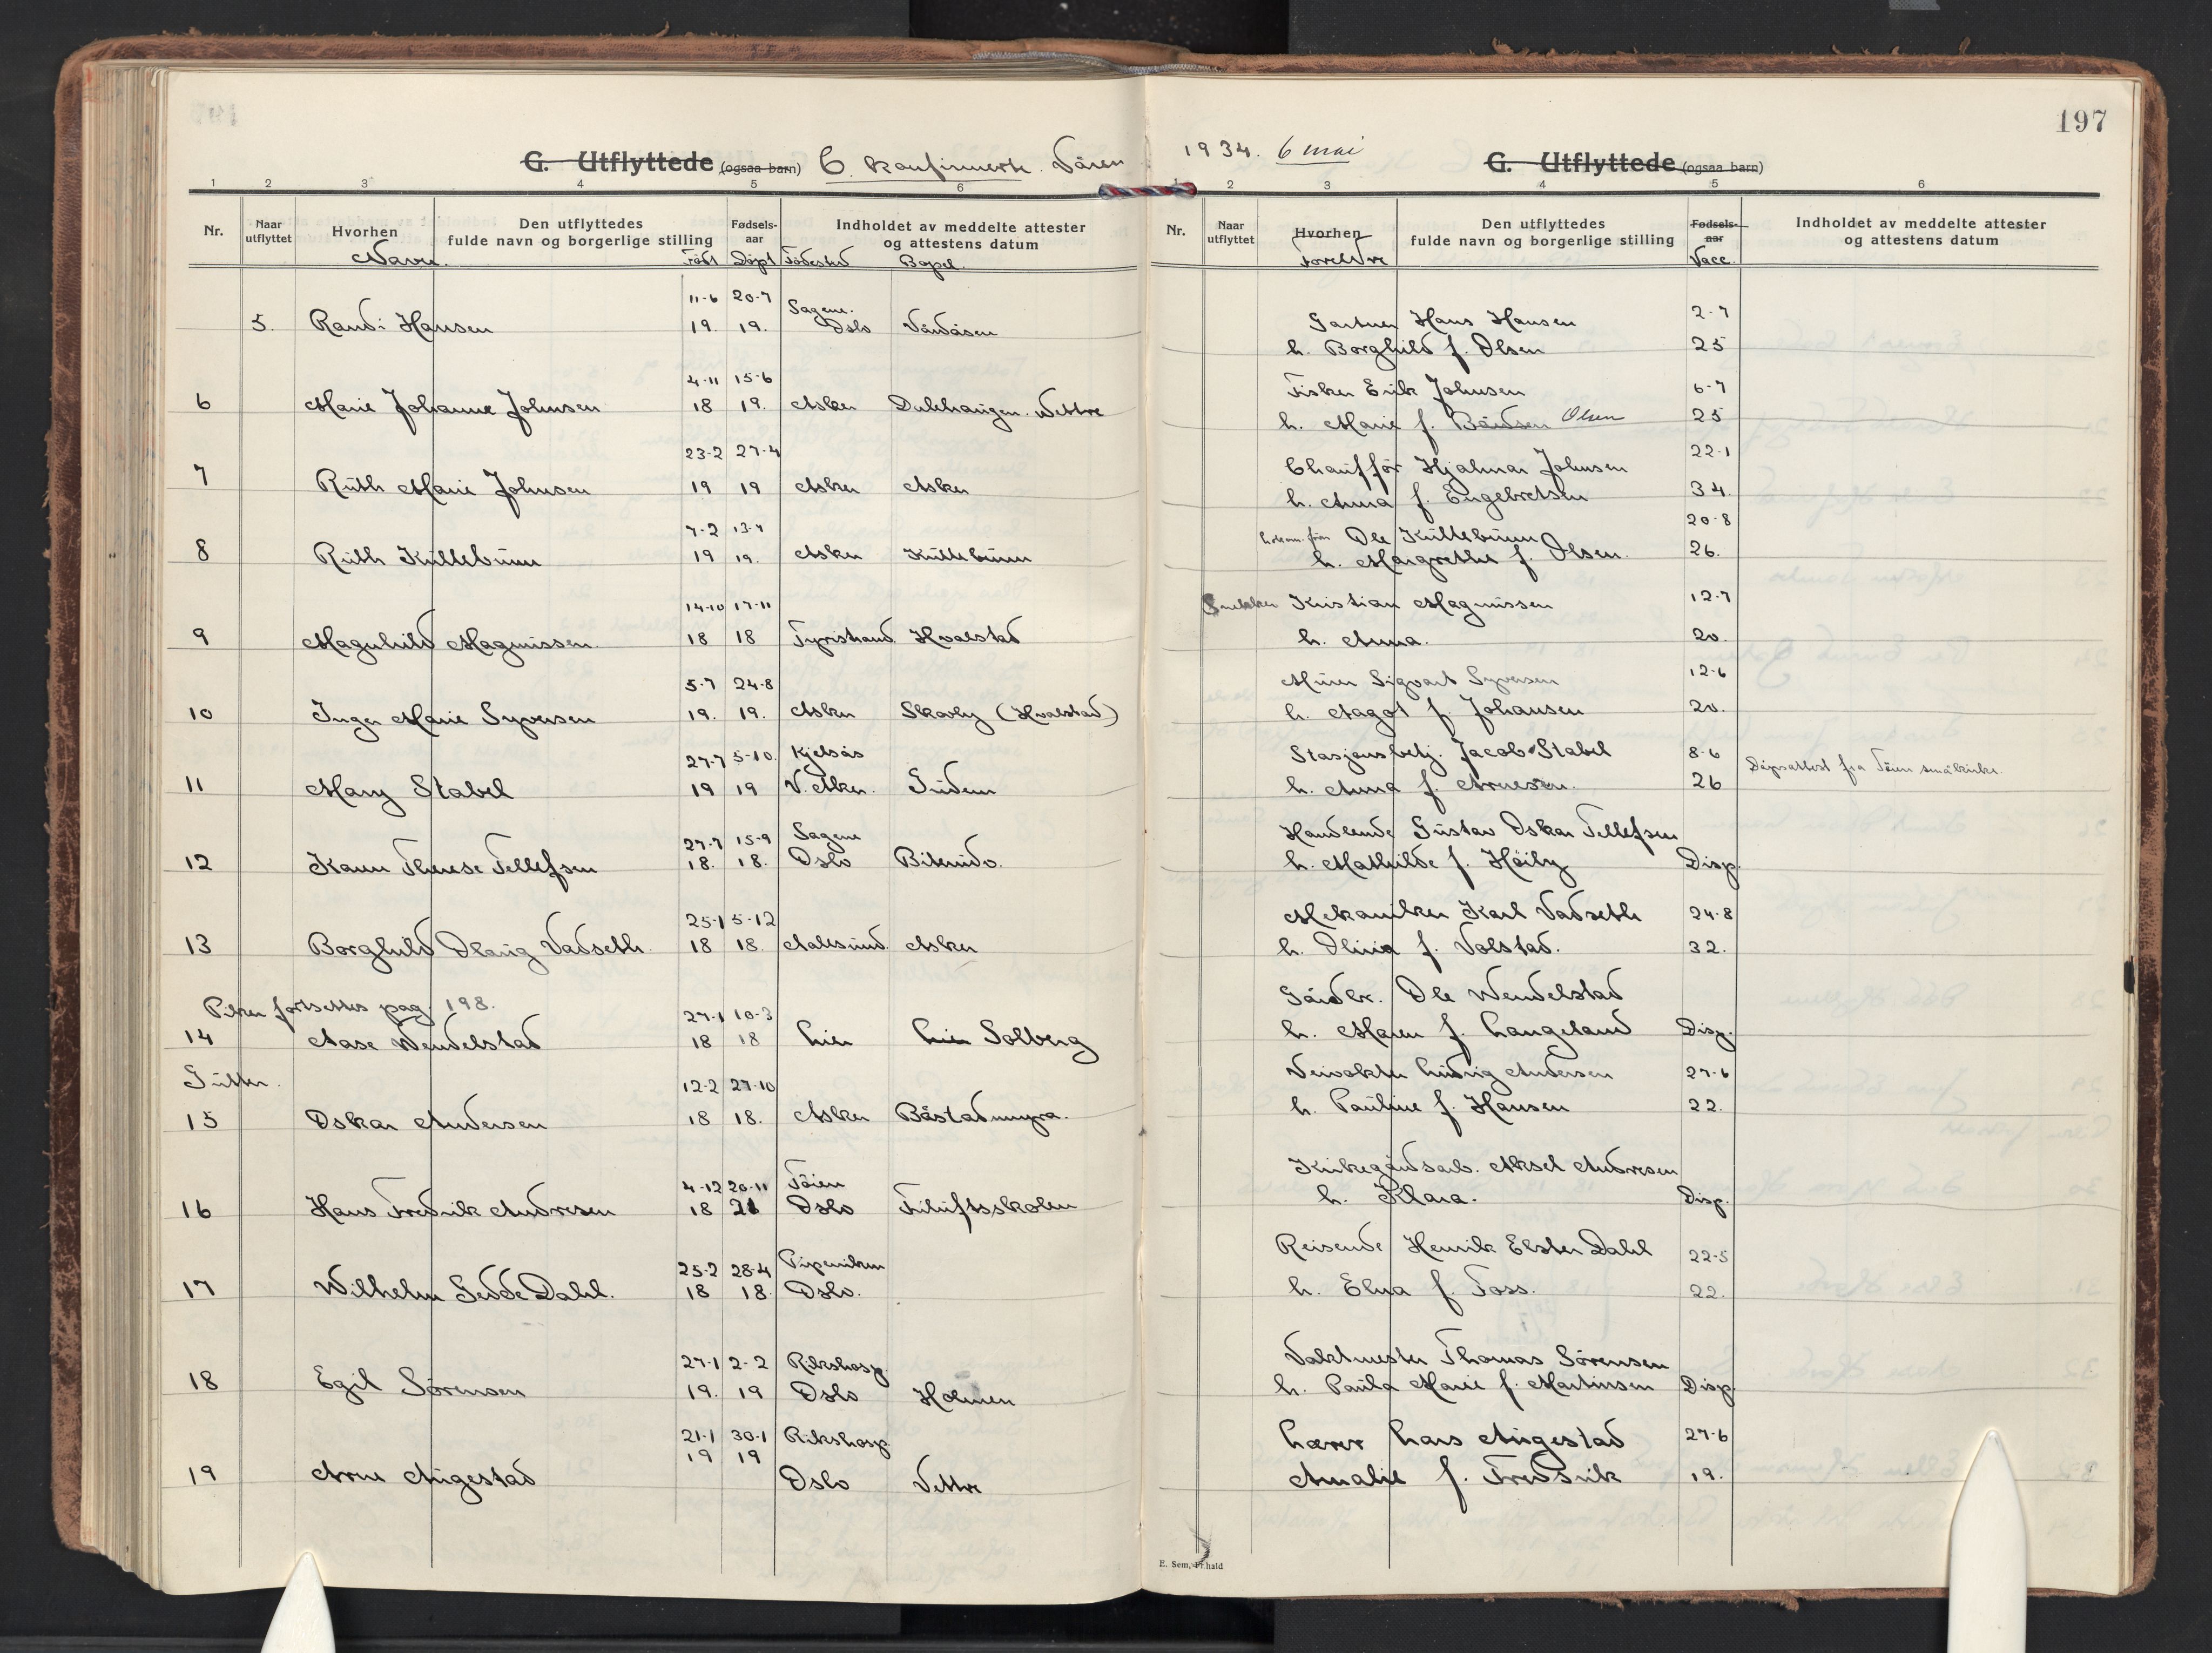 197
G. Utflyttede (ogsaa barn) C. konfirmerte. Våren
1934. 6 mai
G. Utflyttede (ogsaa barn)
1 2 3 4 5 6
1 2 3 4 5 6
Nr. Naar utflyttet Hvorhen Den utflyttedes fulde navn og borgerlige stilling Fødsels-aar Indholdet av meddelte attester og attestens datum
Navn. Født Döpt Födested Bopel.
Nr. Naar utflyttet Hvorhen Den utflyttedes fulde navn og borgerlige stilling Fødsels-aar Indholdet av meddelte attester og attestens datum
Foreldre Vacc.
11-6 20-7 Sagene.
5. Randi Hansen 19. 19. Oslo
Gartner Hans Hansen 2-7
h. Borghild f. Olsen 25
4-11 15-6
6 Marie Johanne Johnsen 18 19. Asker Wettre
Fisker Erik Johnsen 6-7
h. Marie f. Båndsen Olsen 25
23-2 27-4
7 Ruth Marie Johnsen 19 19 Asker Asker
Chauffør Hjalmar Johnsen 22-1
h. Anna f. Engebretsen 34.
7-2 13-4
8 Ruth Küllebunn 19 19. Asker Küllebunn
Ole Küllebunn 20-8
h. Margrethe f. Olsen. 26.
14-10 17-11
9 Magnhild Magnussen. 18 18 Tyristrand Hvalstad
Snekker Kristian Magnussen 12-7
h. Anna. 20.
5-7 24-8
10 Inger Marie Syversen 19. 19. Asker Skovly (Hvalstad)
Murer Sigvart Syversen 12-6
h. Aagot f. Johansen 20.
27-7 5-10. Kjelsås
11 Mary Stabel 19 19 V. Aker.
Stasjonsbetj. Jacob Stabel 8-6
h. Anna f. Arnesen. 26
Dåpsattest fra Töien småkirke.
27-7 15-9 Sagene
12 Karen Therese Tellefsen 18. 18. Oslo
Handlende Gustav Oskar Tellefsen
h. Mathilde f. Höiby Disp.
25-1 5-12
13 Borghild Olaug Vadseth. 18 18. Aalesund. Asker
Mekaniker Karl Vadseth 24-8
h. Olina f. Valstad. 32.
Piker fortsettes pag. 198.
27-1 10-3
14 Aase Wendelstad 18 18 hier hier Solberg
Gårdbr. Ole Wendelstad
h. Maren f. Langeland Disp.
Gutter.
12-2 27-10
15 Oskar Andersen 18 18. Asker Båstadmyra.
Veivokter Ludvig Andersen 27-6
h. Pauline f. Hansen 22.
4-12 20-11 Töien
16 Hans Fredrik Andresen 18 21 Oslo Friluftsskolen
Kirkegårdsarb. Aksel Andresen
h. Klara. Disp.
25-2 28-4 Piperviken
17 Wilhelm Gedde Dahl. 18 18. Oslo.
Reisende Henrik Elster Dahl 22-5
h. Elna f. Foss. 22.
27-1 2-2 Rikshosp.
18 Egil Sørensen 19. 19 Oslo Holmen
Vaktmester Thomas Sørensen
h. Paula Marie f. Martinsen Disp.
21-1 30-1 Rikshosp.
19 19
19 Arne Augestad Oslo Vettre
Lærer Lars Augestad 27-6
Amalie f. Fredrik 19.
E. Sem, Fr.hald